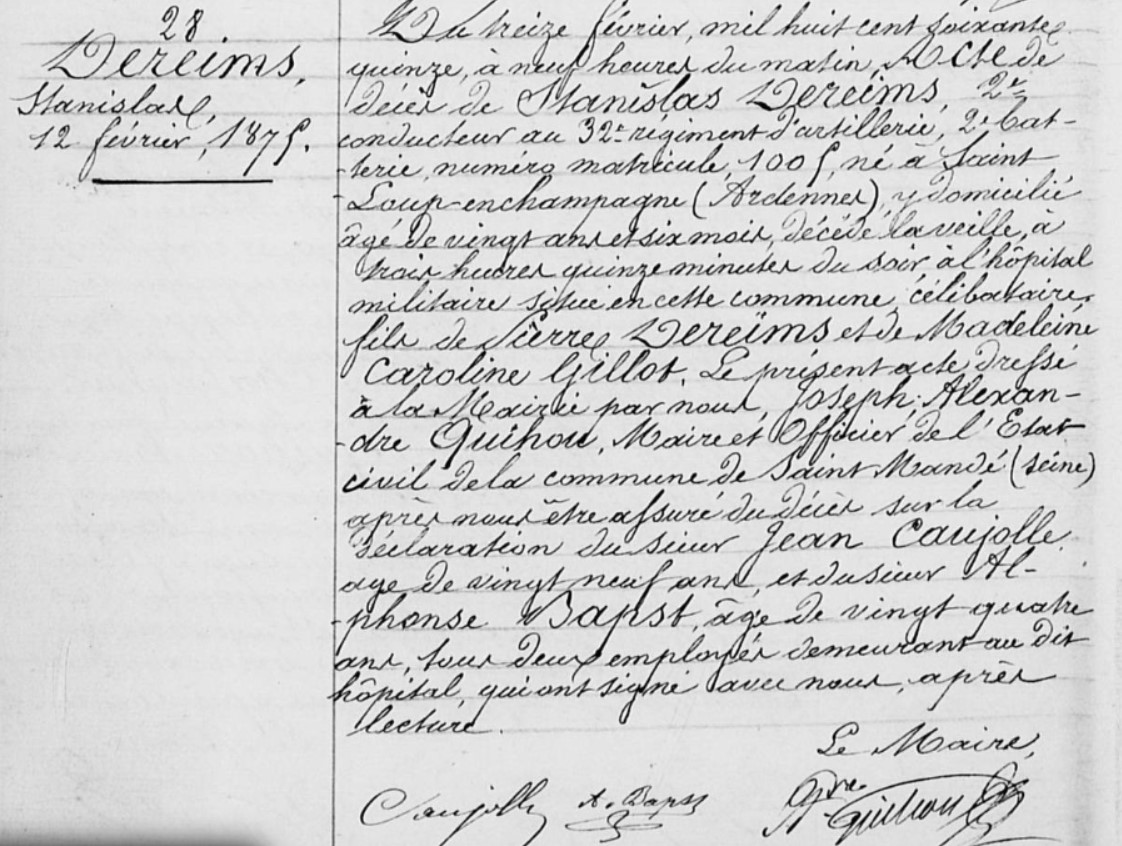 28
Dereims,
Stanislas,
12 février, 1875.
Du treize février, mil huit cent soixante
quinze, à neuf heures du matin, Acte de
décès de Stanislas Dereims, 2e
conducteur au 32e régiment d'artillerie, 2e bat-
-terie, numéro matricule, 1005, né à Saint
-Loup-enchampagne (Ardennes), y domicilié
âgé de vingt ans et six mois, décédé la veille, à
trois heures quinze minutes du soir à l'hôpital
militaire située en cette commune, célibataire,
fils de Pierre Dereims et de Madeleine
Caroline Gillot. Le présent acte dressé
à la Mairie par nous, Joseph, Alexan-
-dre Quihou, Maire et Officier de l'Etat
civil de la commune de Saint Mandé (Seine)
après nous être assuré du décès sur la
déclaration du sieur Jean Caujolle
age de vingt neuf ans, et du sieur Al-
-phonse Bapst, âge de vingt quatre
ans, tous deux employés demeurant au dit
hôpital, qui ont signé avec nous, après
lecture.
Le Maire,
Caujolle A. Bapst Quihou